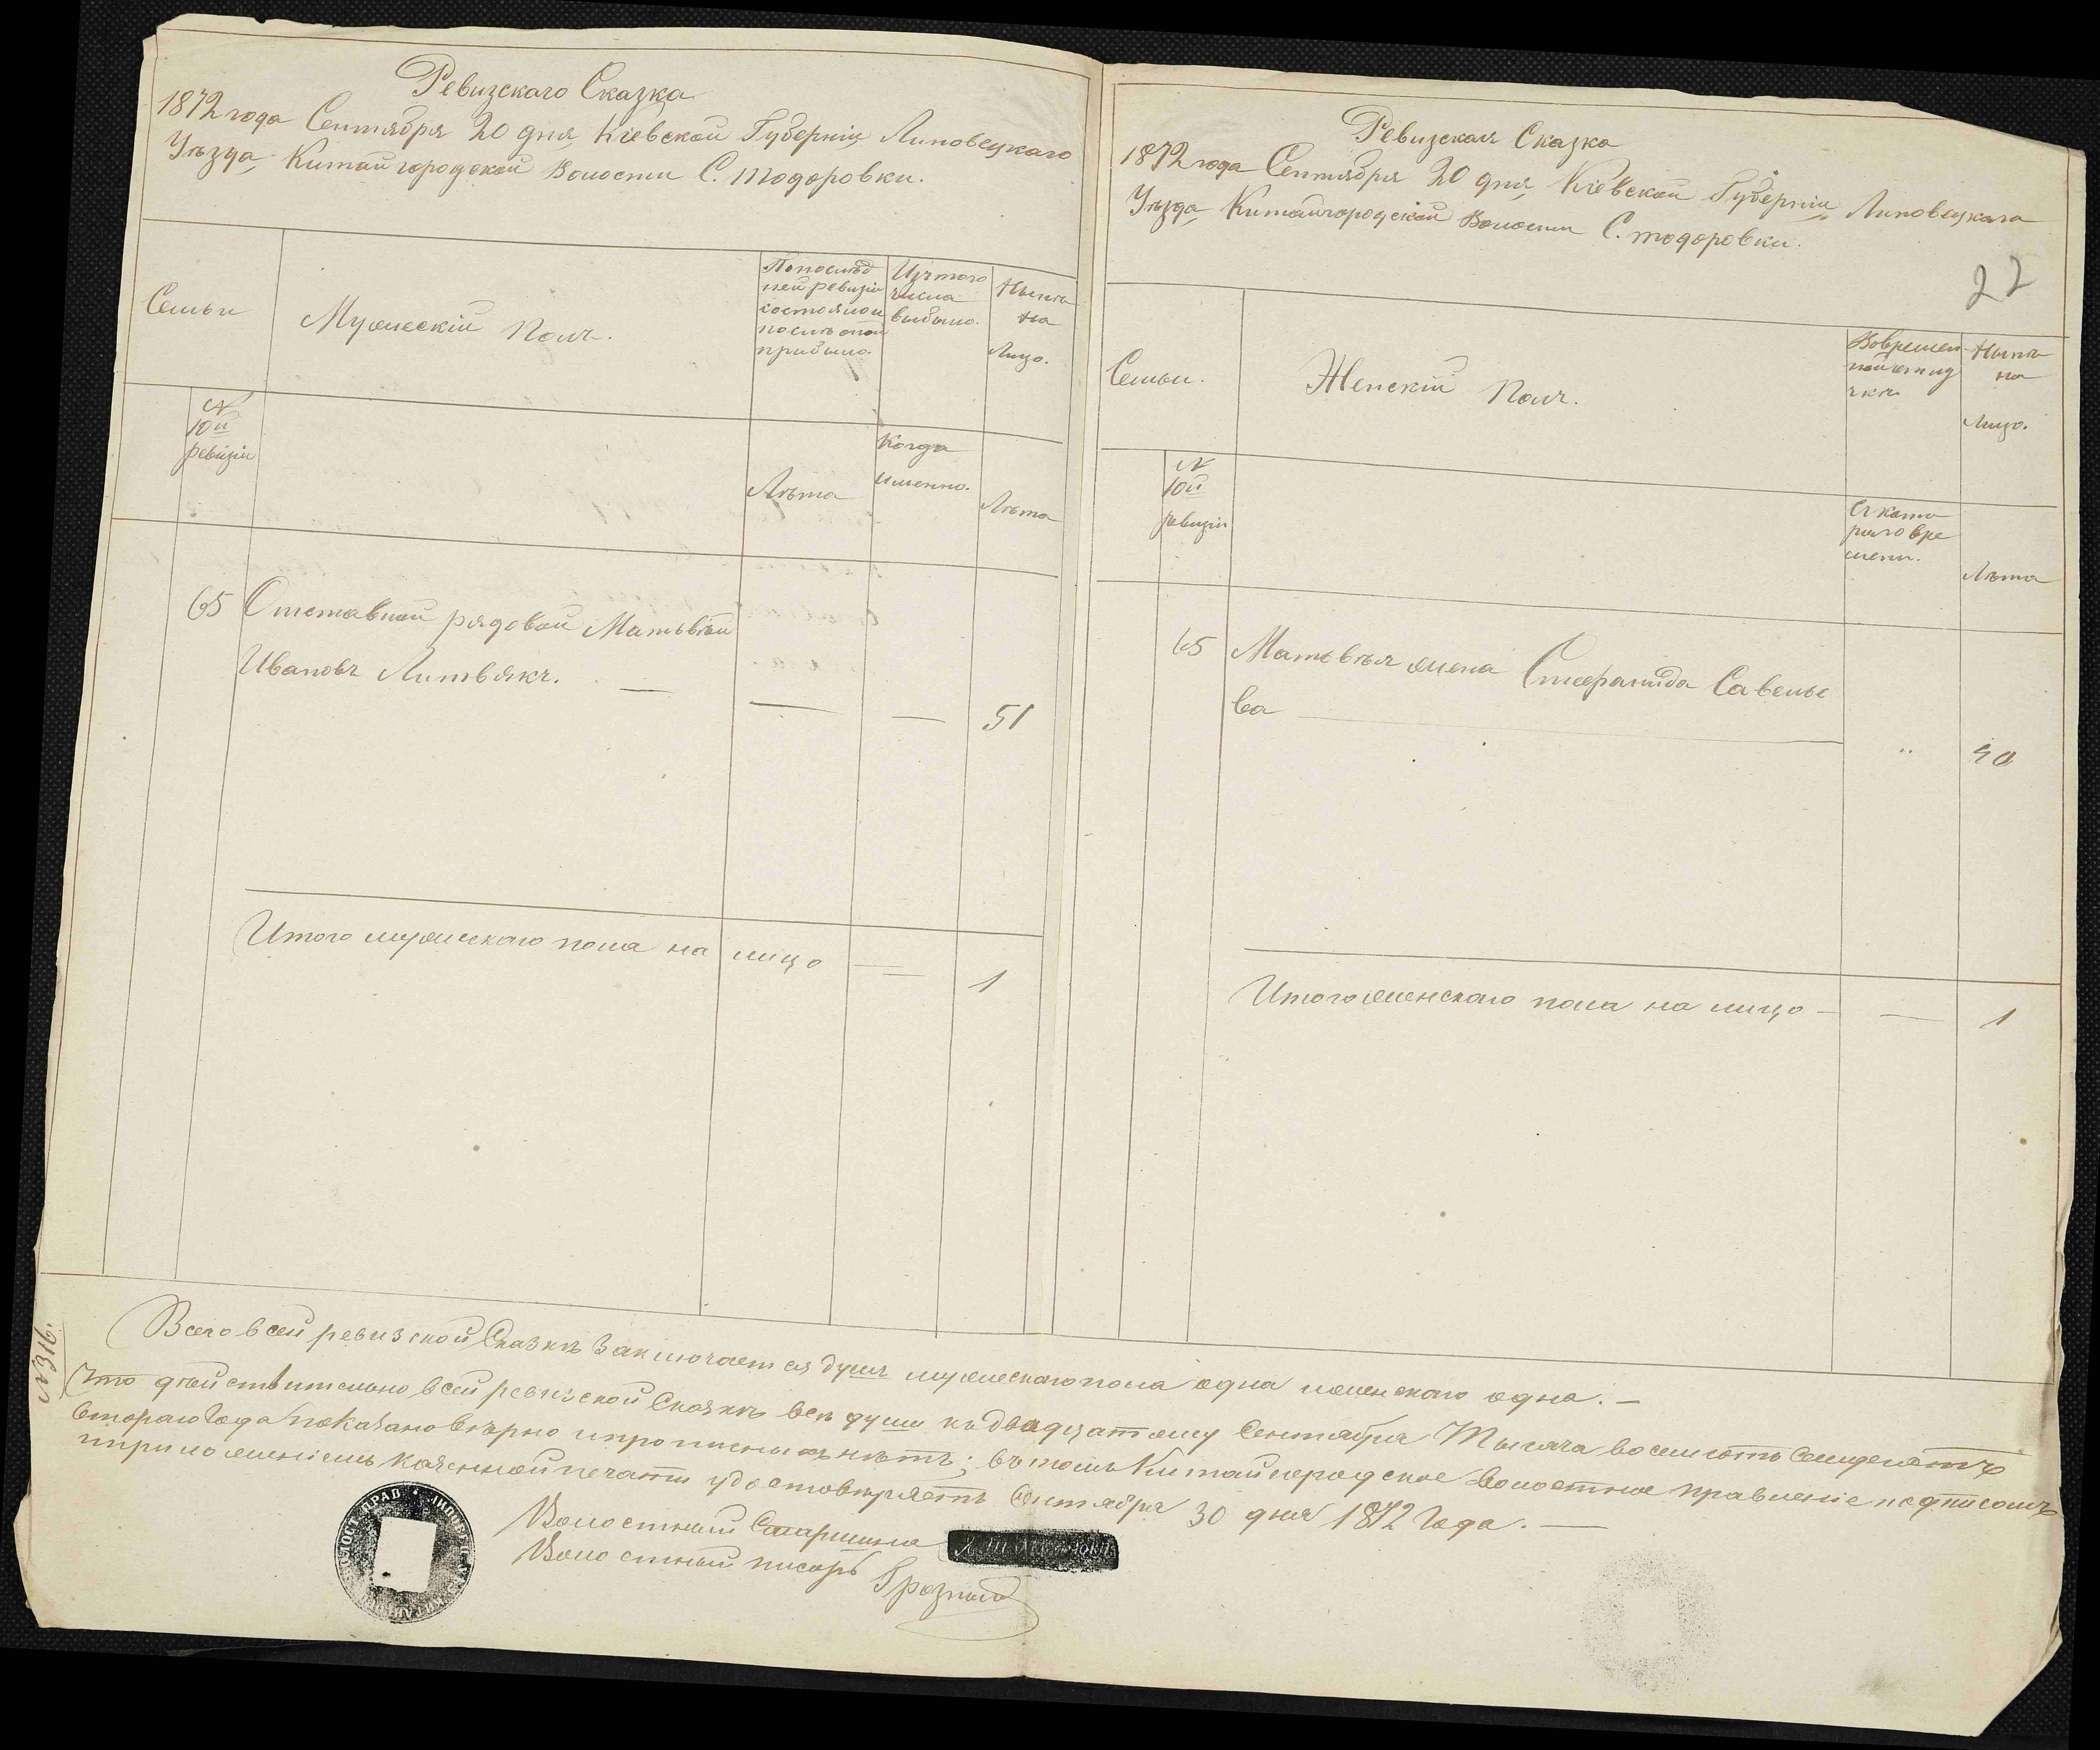 Ревизскаго Сказка
1872 года Сентября 20 дня, Кіевской Губерніи Липовецкаго
Уѣзда, Китайгородской Волости С. Тодоровки.
Семьи
Мужескій Полъ.
По послѣд
ней ревизіи
состояло и
послѣ оной
прибыло.
Изъ того
числа
выбыло.
Нынѣ
на
Лицо.
N
10й
ревизіи
Лѣта
Когда
именно.
Лѣта
65 Отставной рядовой Матьвѣй
Ивановъ Литвякъ. — — — 51
Итого мужескаго пола на лицо — 1
Ревизская Сказка
1872 года Сентября 20 дня, Кіевской Губерніи, Липовецкаго
Уѣзда, Китайгородской Волости С. Тодоровки.
22
Семьи.
Женскій Полъ.
Вовремен
ной отлу
чкѣ
Нынѣ
на
Лицо.
N
10й
ревизіи
Съ кото
раго вре
мени.
Лѣта
65 Матьвѣя жена Стефанида Савелье
ва — „ 40
Итого женскаго пола на лицо — — 1
N 316.
Всего в сей ревизской Сказкѣ Заключается душъ мужескаго пола одна и женскаго одна. —
Что дѣйствительно в сей ревизской Сказкѣ всѣ души къ двадцатому Сентября Тысяча восемсотъ Семдесятъ
втораго Года показано вѣрно и прописныхъ нѣтъ; въ томъ Китайгородское волостное правленіе подписомъ
и приложеніемъ казенной печати удостовѣряетъ Сентября 30 дня 1872 Года. —
Волостный Старшина
Волостный писарь Грозный